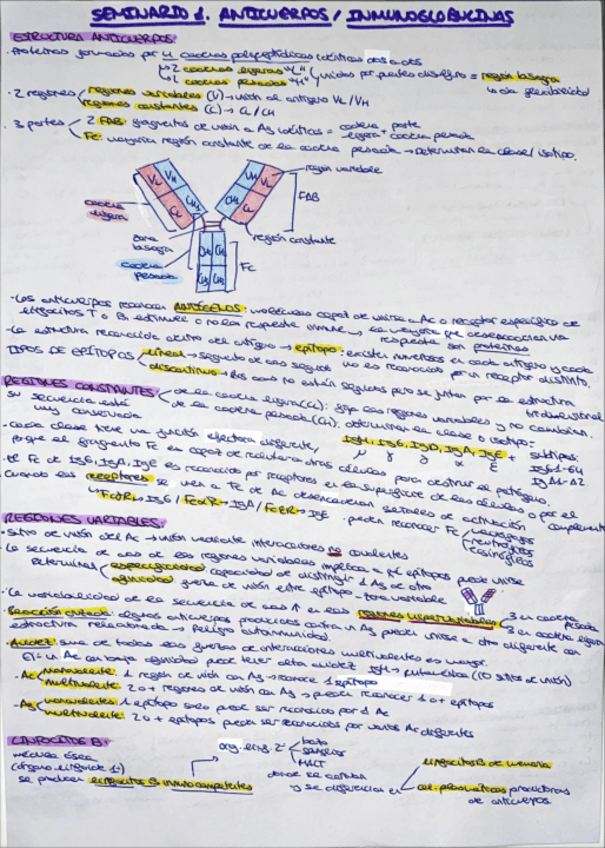 SEMINARIO 1. ANTICUERPOS / INMUNOGLOBULINAS
ESTRUCTURA ANTICUERPOS:
· Proteínas formadas por 4 cadenas polipeptídicas idénticas dos a dos
2 cadenas ligeras "L"
2 cadenas pesadas "H" unidas por puentes disulfuro = región bisagra
↳ da flexibilidad
· 2 regiones regiones variables (V) → unión al antígeno VL/VH
regiones constantes (C) → CL/CH
· 3 partes 2 FAB: fragmentos de unión a Ag idénticos = cadena ligera + parte cadena pesada
Fc: mayoría región constante de la cadena pesada → determinan la clase/isotipo.
región variable
VL VH VH VL
FAB
cadena ligera
CL CH1 CH1 CL
zona bisagra
región constante
cadena pesada
CH2 CH2
CH3 CH3
Fc
· Los anticuerpos reconocen ANTÍGENOS: moléculas capaz de unirse a Ac o receptor específico de
linfocitos T o B estimule o no la respuesta inmune → la mayoría que desencadenan una
respuesta son proteínas
· La estructura reconocida dentro del antígeno → epítopo: existen numerosos en cada antígeno y cada
uno es reconocido por un receptor distinto.
TIPOS DE EPÍTOPOS lineal → segmento de aas seguidos
discontinuo → los aas no están seguidos pero se juntan por la estructura
tridimensional
REGIONES CONSTANTES de la cadena ligera (CL): fija las regiones variables y no cambian.
su secuencia está muy conservada de la cadena pesada (CH): determinan la clase o isotipo:
IgM, IgG, IgD, IgA, IgE
μ γ δ α ε
subtipos:
IgG1-G4
IgA1-A2
· Cada clase tiene una función efectora diferente,
porque el fragmento Fc es capaz de reclutar a otras células para destruir el patógeno.
· El Fc de IgG, IgA, IgE es reconocido por receptores en la superficie de las células o por el
complemento
· Cuando los receptores se unen a Fc de Ac desencadenan señales de activación
FcγR → IgG / FcαR → IgA / FcεR → IgE. pueden reconocer Fc macrófagos
neutrófilos
eosinófilos
REGIONES VARIABLES:
· Sitio de unión del Ac → unión mediante interacciones no covalentes
· La secuencia de aas de las regiones variables implica a qué epítopos puede unirse
Determinan especificidad capacidad de distinguir 1 Ag de otro
afinidad fuerza de unión entre epítopo - zona variable
· La variabilidad de la secuencia de aas ↑ en las regiones hipervariables 3 en cadena pesada
3 en cadena ligera
· Reacción cruzada: algunos anticuerpos producidos contra un Ag pueden unirse a otro diferente con
estructura relacionada → peligro autoinmunidad.
· Avidez: suma de todas las fuerzas de interacciones multivalentes es mayor.
Ej: un Ac con baja afinidad puede tener alta avidez IgM → pentamérica (10 sitios de unión)
· Ac monovalente: 1 región de unión con Ag → reconoce 1 epítopo
multivalente: 2 o + regiones de unión con Ag → puede reconocer 1 o + epítopos
· Ag monovalente 1 epítopo solo puede ser reconocido por 1 Ac
multivalente: 2 o + epítopos pueden ser reconocidos por varios Ac diferentes
LINFOCITOS B:
médula ósea
(órgano linfoide 1º)
se producen linfocitos B inmunocompetentes
org. linf. 2º bazo
ganglios
MALT
donde se activan
y se diferencian en
linfocitos B de memoria
cel. plasmáticas productoras
de anticuerpos